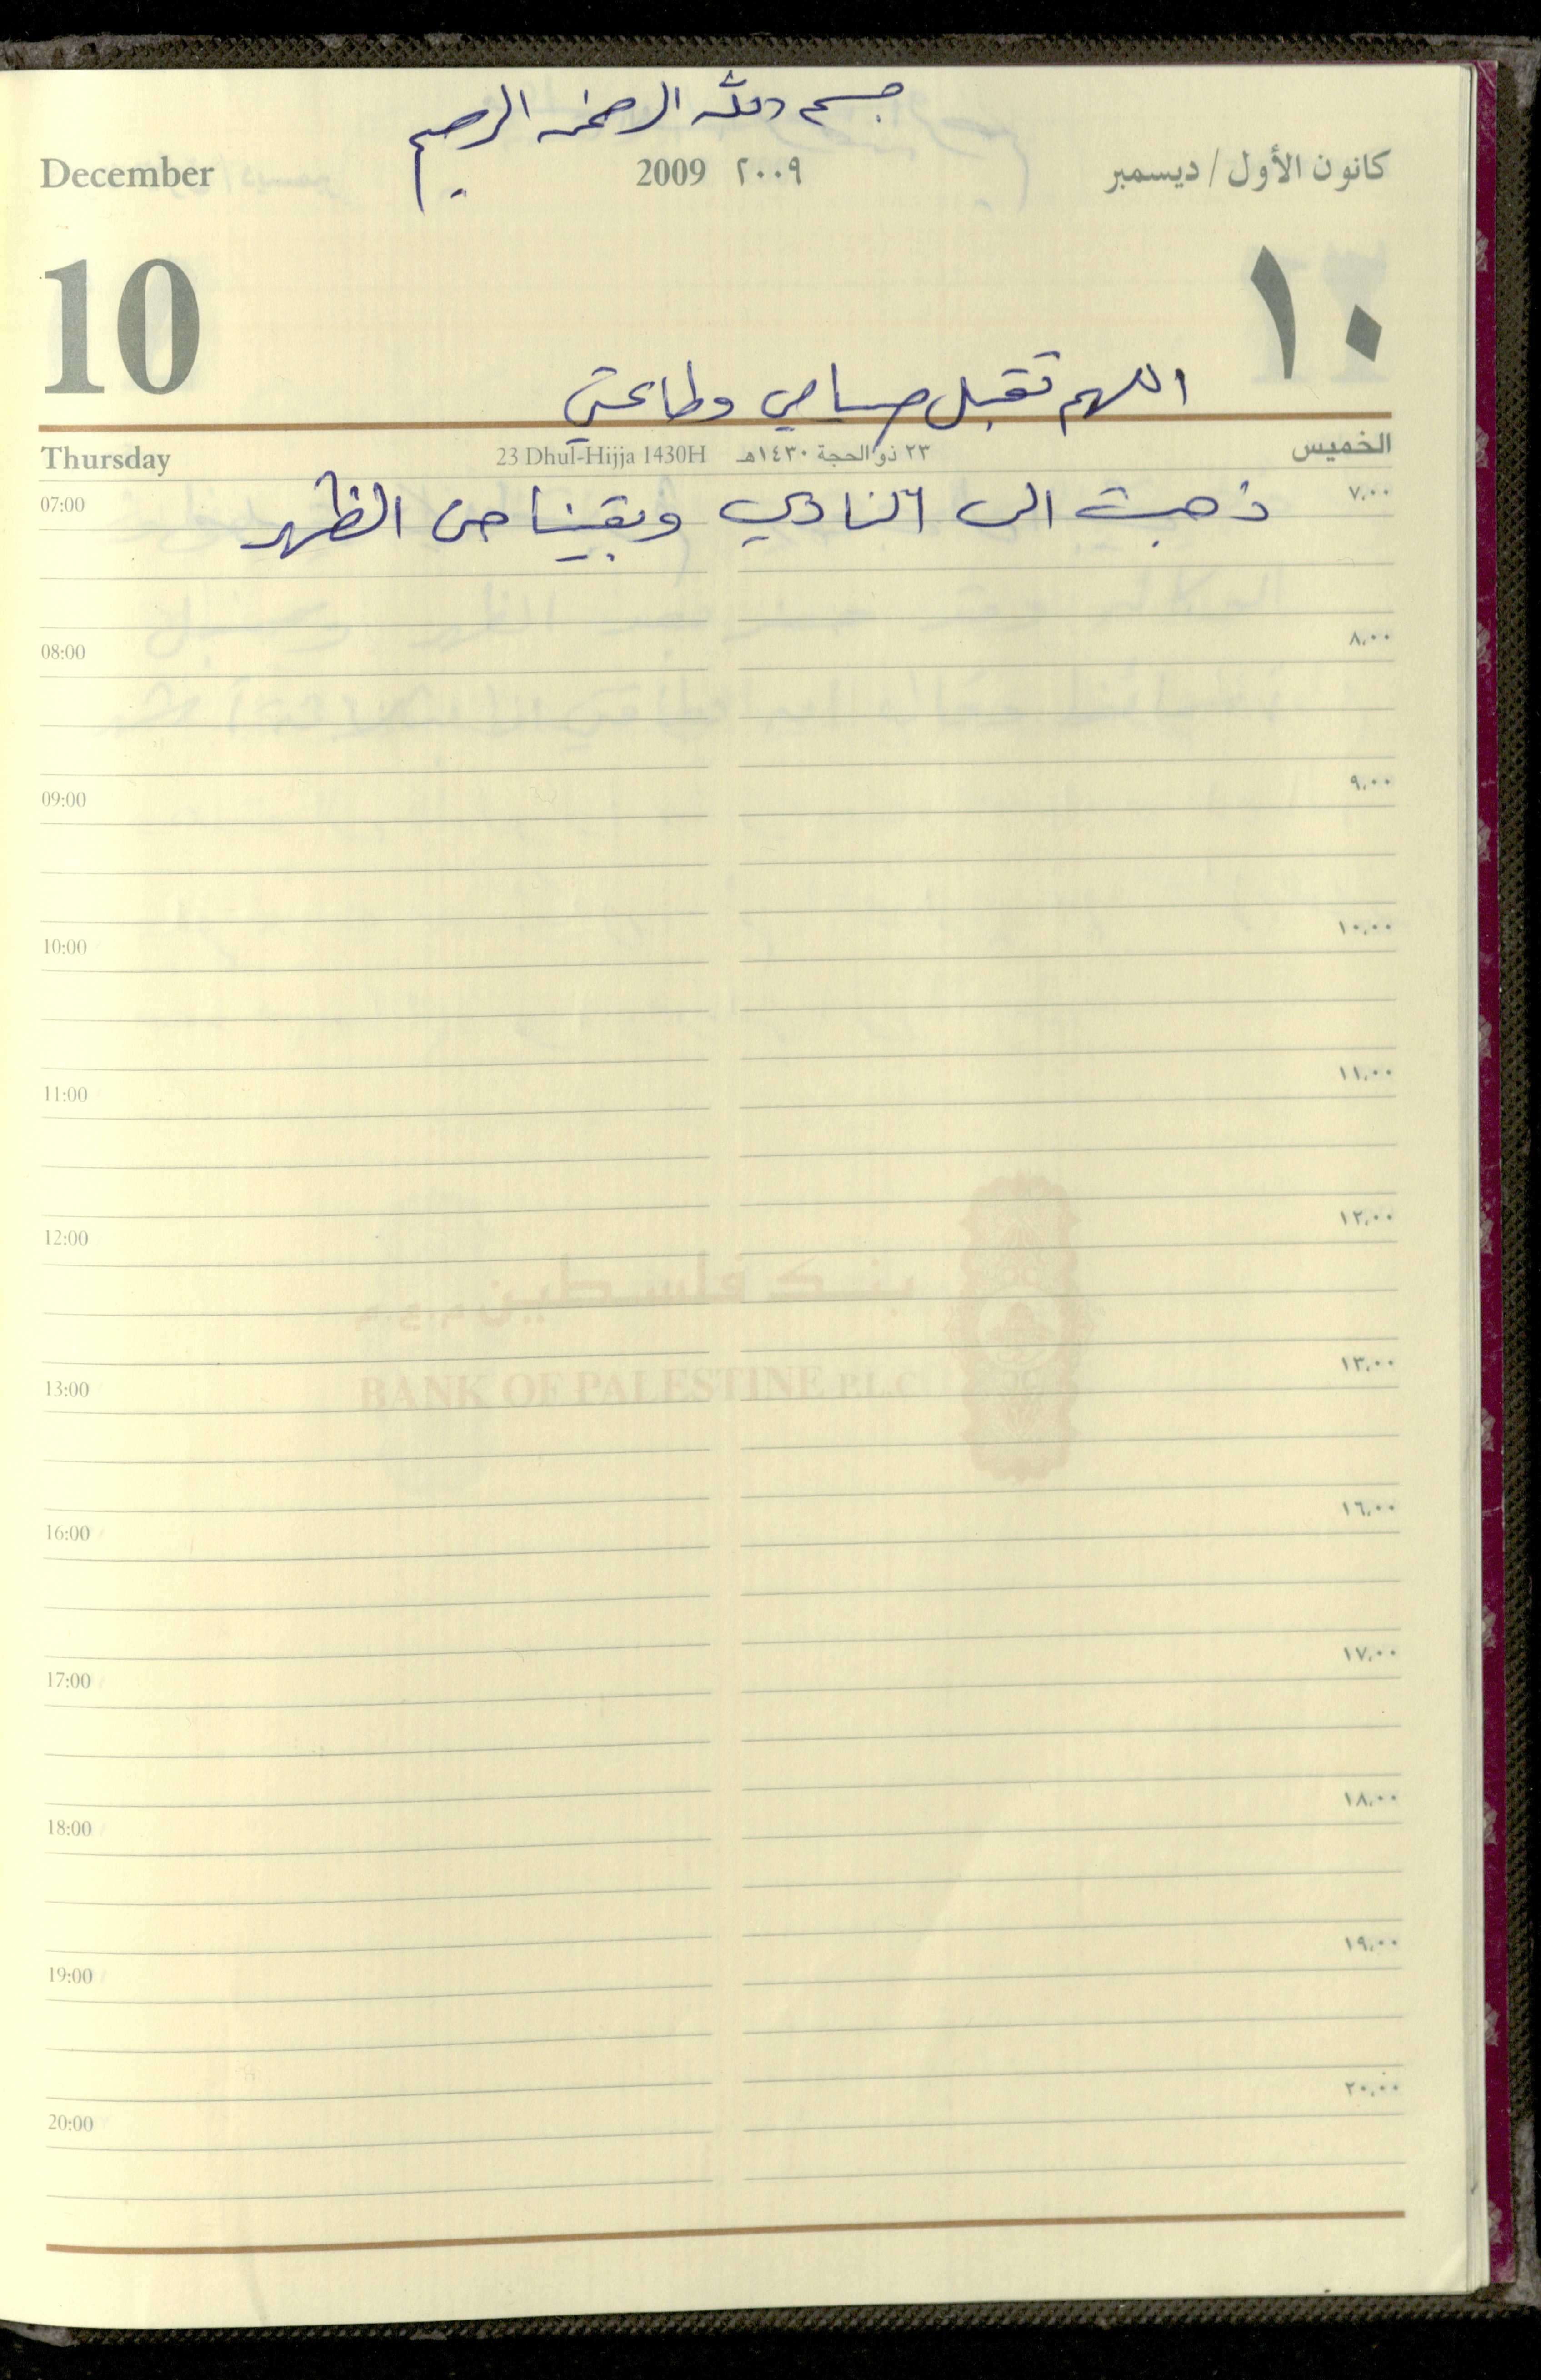 بسم الله الرحمن الرحيم
December 2009 ٢٠٠٩ كانون الأول / ديسمبر
10 ١٠
اللهم تقبل صيامي وطاعتي
Thursday 23 Dhul-Hijja 1430H ٢٣ ذو الحجة ١٤٣٠هـ الخميس
07:00 ٧،٠٠
ذهبت الى النادي وبقينا حتى الظهر
08:00 ٨،٠٠
09:00 ٩،٠٠
10:00 ١٠،٠٠
11:00 ١١،٠٠
12:00 ١٢،٠٠
بنك فلسطين م.ع.م
13:00 ١٣،٠٠
BANK OF PALESTINE P.L.C
16:00 ١٦،٠٠
17:00 ١٧،٠٠
18:00 ١٨،٠٠
19:00 ١٩،٠٠
20:00 ٢٠،٠٠